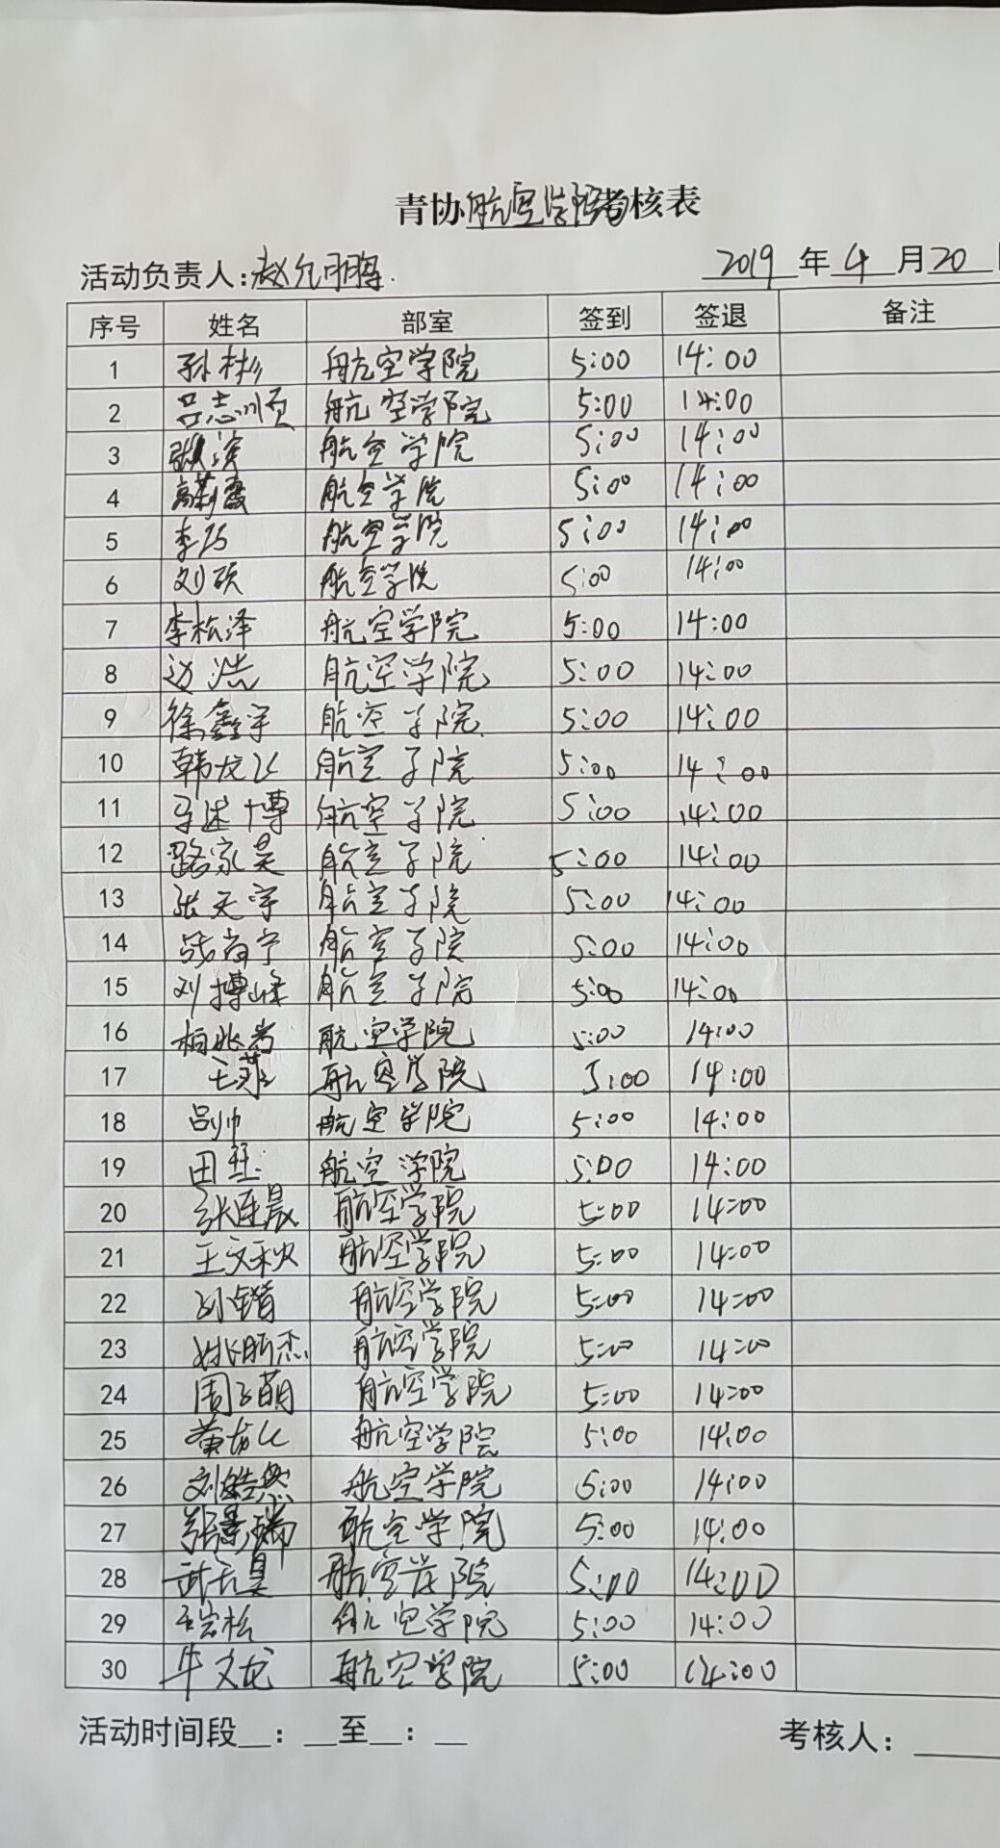 青协航空学院考核表
活动负责人:赵允
2019年4月20
序号 姓名 部室 签到 签退 备注
1 孙彬 航空学院 5:00 14:00
2 吕志顺 航空学院 5:00 14:00
3 张滨 航空学院 5:00 14:00
4 航空学院 5:00 14:00
5 李巧 航空学院 5:00 14:00
6 刘硕 航空学院 5:00 14:00
7 李松泽 航空学院 5:00 14:00
8 边浩 航空学院 5:00 14:00
9 徐鑫宇 航空学院 5:00 14:00
10 韩龙飞 航空学院 5:00 14:00
11 马述博 航空学院 5:00 14:00
12 路家昊 航空学院 5:00 14:00
13 张天宇 航空学院 5:00 14:00
14 宁 航空学院 5:00 14:00
15 刘博峰 航空学院 5:00 14:00
16 柏兆 航空学院 5:00 14:00
17 王 航空学院 5:00 14:00
18 吕帅 航空学院 5:00 14:00
19 田 航空学院 5:00 14:00
20 张连晟 航空学院 5:00 14:00
21 王文秋 航空学院 5:00 14:00
22 刘锴 航空学院 5:00 14:00
23 姚昕杰 航空学院 5:00 14:00
24 周子萌 航空学院 5:00 14:00
25 黄龙飞 航空学院 5:00 14:00
26 刘皓然 航空学院 5:00 14:00
27 张景瑞 航空学院 5:00 14:00
28 武天昊 航空学院 5:00 14:00
29 王宏松 航空学院 5:00 14:00
30 牛文龙 航空学院 5:00 14:00
活动时间段__:__至__:__
考核人: